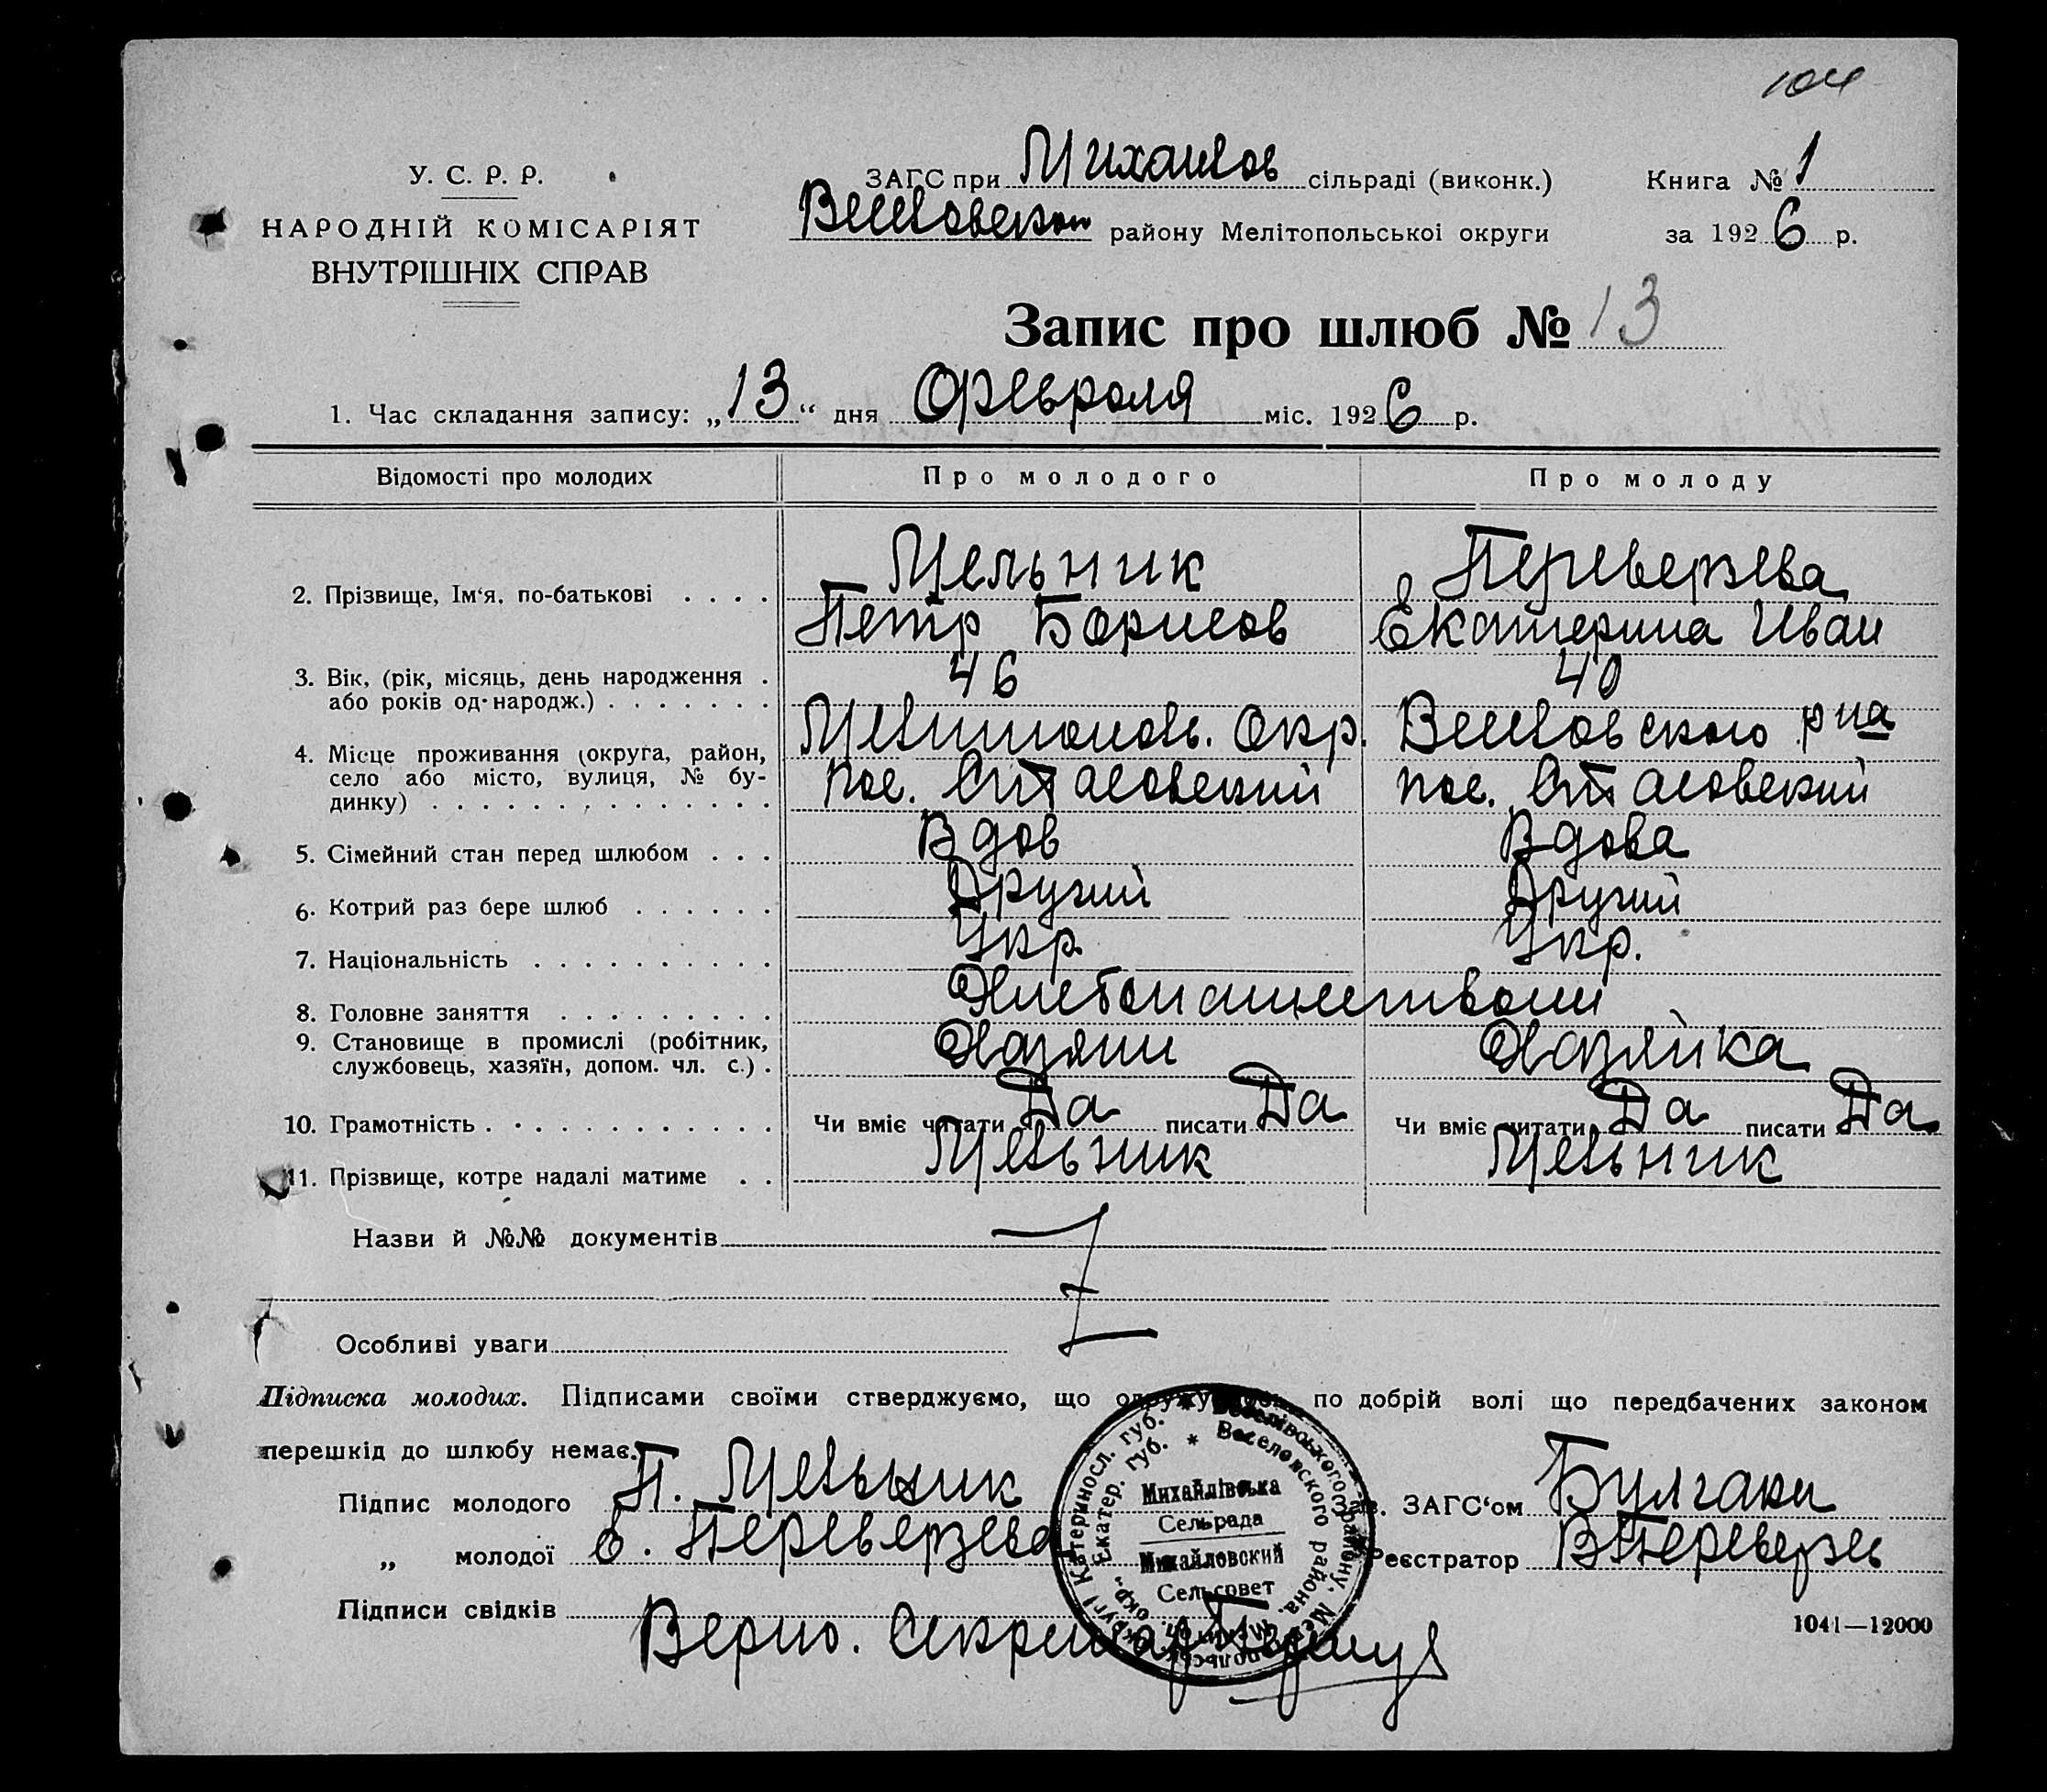 104
У. С. Р. Р.
НАРОДНІЙ КОМІСАРІЯТ
ВНУТРІШНІХ СПРАВ
ЗАГС при Михайлов сільраді (виконк.)
Веселовском району Мелітопольської округи
Книга № 1
за 1926 р.
Запис про шлюб № 13
1. Час складання запису: „13“ дня Февраля міс. 1926 р.
Відомості про молодих
Про молодого
Про молоду
2. Прізвище, Ім'я, по-батькові . . . .
Мельник
Петр Борисов
Переверзева
Екатерина Иван
3. Вік, (рік, місяць, день народження .
або років од-народж.) . . . . . . .
46
40
4. Місце проживання (округа, район,
село або місто, вулиця, № бу-
динку) . . . . . . . . . . . . . .
Мелитополь. Окр.
пос. Стасовский
Веселовского р-на
пос. Стасовский
5. Сімейний стан перед шлюбом . . .
Вдов
Вдова
6. Котрий раз бере шлюб . . . . . .
Другий
Другий
7. Національність . . . . . . . . . .
Укр.
Укр.
8. Головне заняття . . . . . . . . .
Хлебопашеством
9. Становище в промислі (робітник,
службовець, хазяїн, допом. чл. с.) .
Хазяин
Хазяйка
10. Грамотність . . . . . . . . . . . .
Чи вміє читати Да писати Да
Чи вміє читати Да писати Да
11. Прізвище, котре надалі матиме . .
Мельник
Мельник
Назви й №№ документів
Особливі уваги
Підписка молодих. Підписами своїми стверджуємо, що одружуємось по добрій волі що передбачених законом
перешкід до шлюбу немає.
Підпис молодого П. Мельник
„ молодої Е. Переверзева
Підписи свідків
ЗАГС'ом
Реєстратор
Верно. Секретар
Михайлівська
Сельрада
Михайловский
Сельсовет
Веселівського району. Мелітопольськ. округ. Катериносл. губ.
Веселовского района. окр. Екатер. губ.
1041—12000